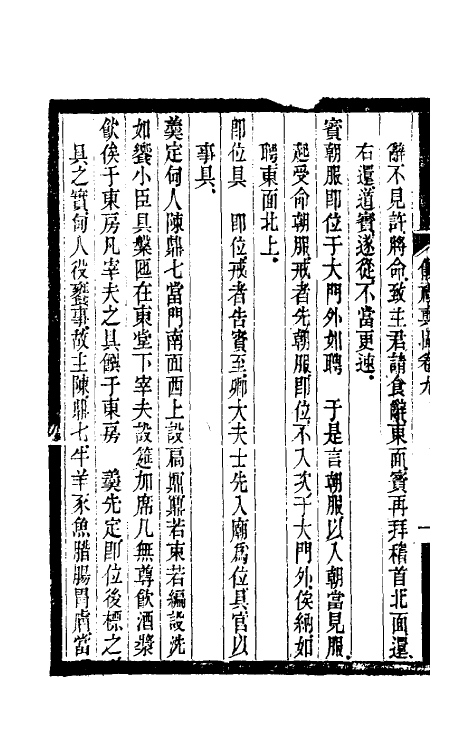 辭不見許將命致主君請食辭東面賓再拜稽首北面還
右還道賓遂從不當更速
賓朝服即位于大門外如聘　于是言朝服以入朝當見服
起受命朝服戒者先朝服即位不入次于大門外俟納如
聘東面北上
即位具　即位戒者告賓至卿大夫士先入廟爲位具官以
事具
羹定甸人陳鼎七當門南面西上設扃鼏鼏若束若編設洗
如饗小臣具槃匜在東堂下宰夫設筵加席几無尊飲酒漿
飲俟于東房凡宰夫之具饌于東房　羹先定即位後標之
具之實甸人役饔事故主陳鼎七牛羊豕魚腊腸胃膚當